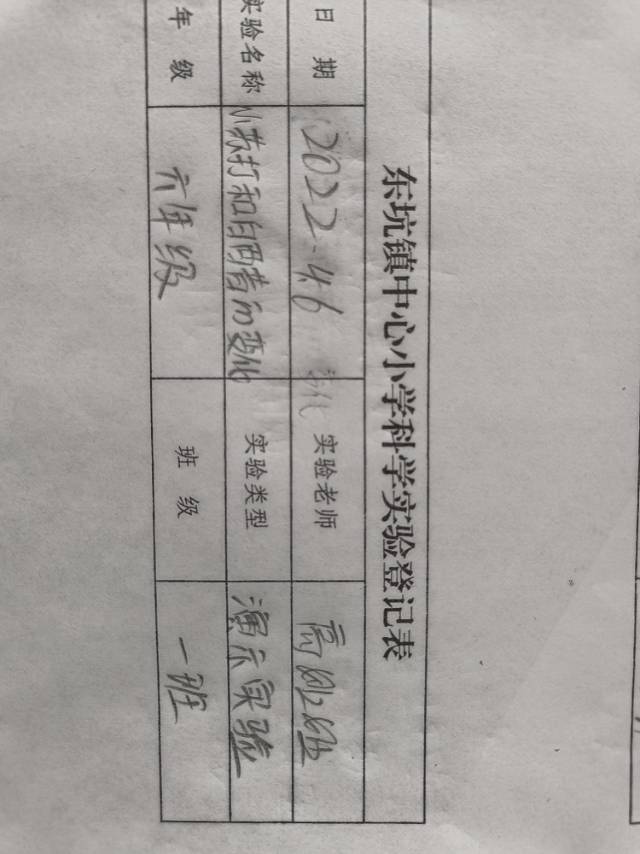 东坑镇中心小学科学实验登记表
日 期 2022.4.6 实验老师
实验名称 小苏打和白醋的变化 实验类型 演示实验
年 级 六年级 班 级 一班